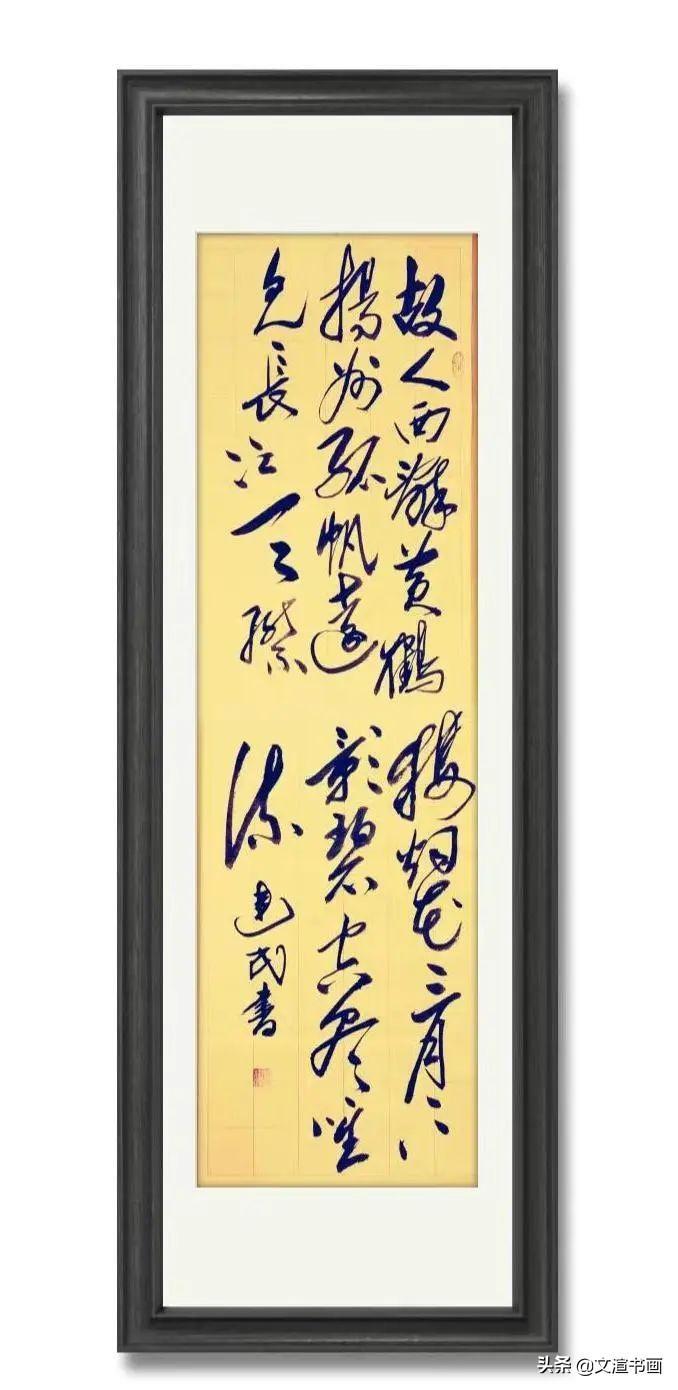 故人西辭黄鶴樓烟花三月下
揚州孤帆遠影碧空盡唯
見長江天際流
建民書
头条 @文渲书画